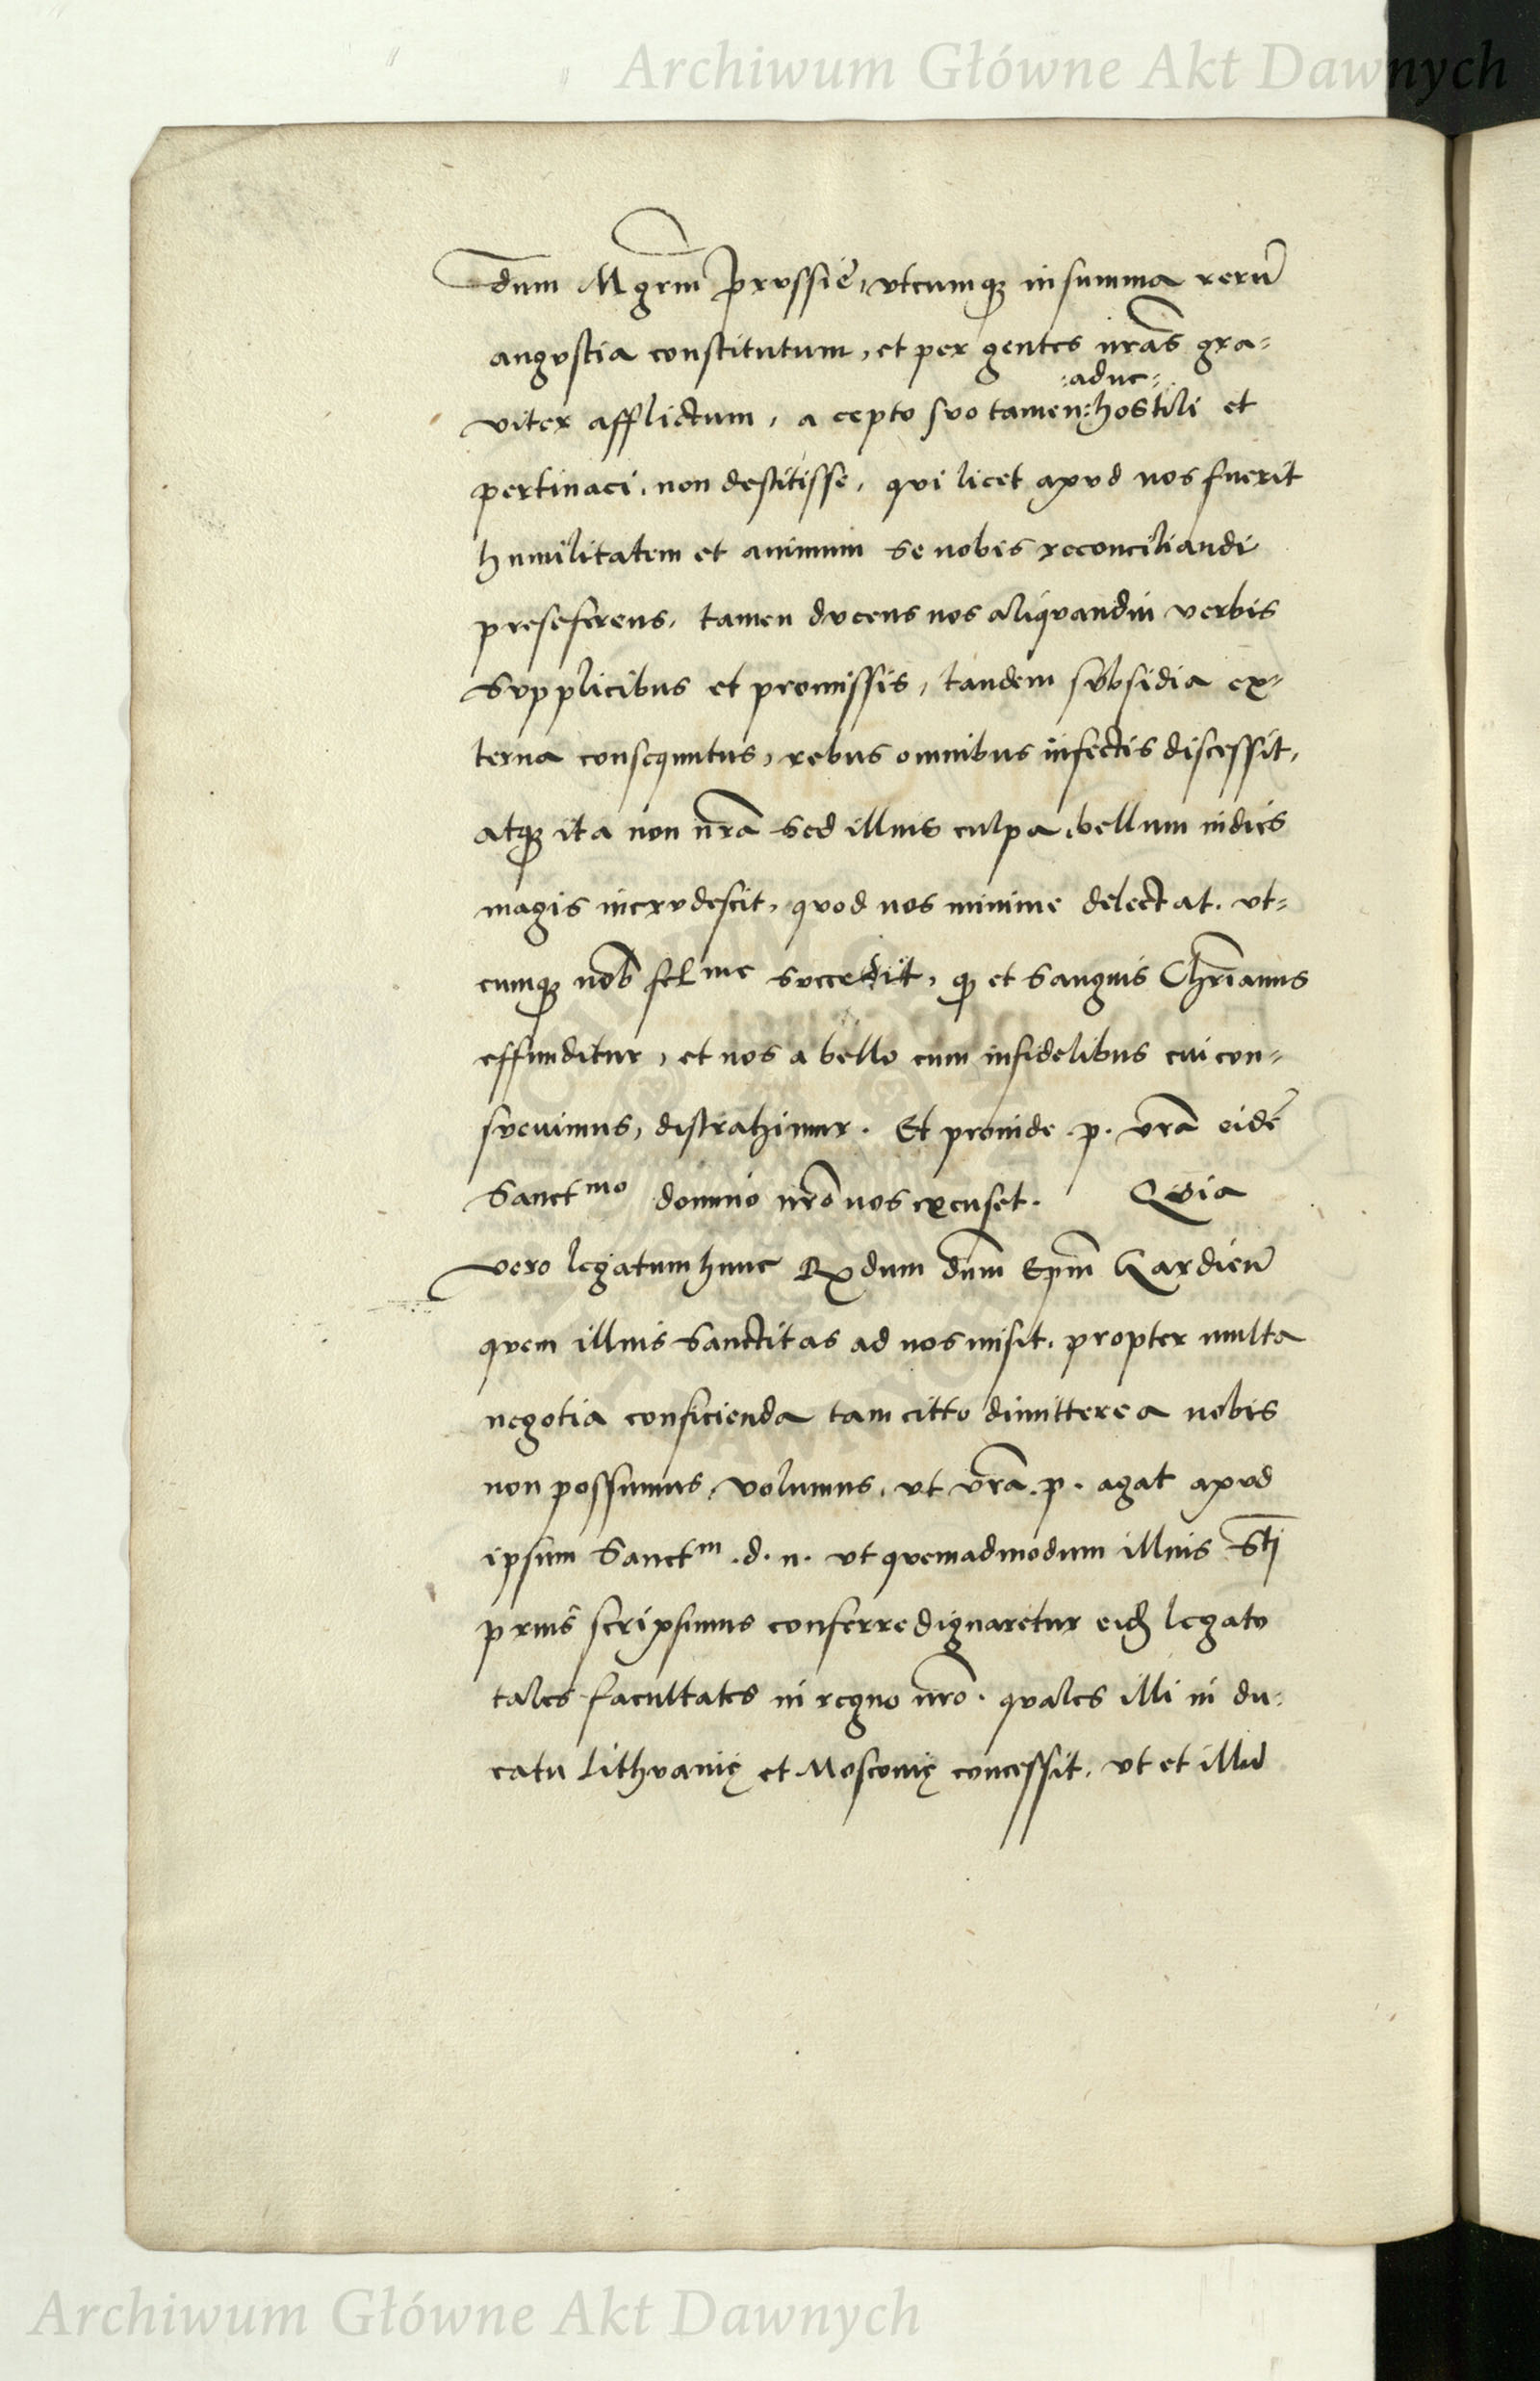 Archiwum Główne Akt Dawnych
dum Mgrm̃ Prvssię, vtcumqȝ in summa rerũ
angvstia constitutum, et per gentes nr̃as gra=
:aduc:
viter afflictum, a cepto svo tamen: hostili et
pertinaci, non destitisse, qvi licet apvd nos fuerit
humilitatem et animum se nobis reconciliandi
preseferens, tamen dvcens nos aliqvandiu verbis
svpplicibus et promissis, tandem svbsidia ex=
terna consequutus, rebus omnibus infectis discessit,
atqȝ ita non nr̃a sed illius culpa, bellum indies
magis incrvdescit, qvod nos minime delectat. vt=
cumqȝ nob̃ felme svccedit, qȝ et sanguis Chr̃ianus
effunditur, et nos a bello cum infidelibus cui con=
svevimus, distrahimur. Et proinde .p. vr̃a eidẽ
Sanctmo domino nr̃o nos excuset. Qvia
vero legatum hunc Rx̃dum dñm Ep̃m Gardieñ
qvem illius Sanctitas ad nos misit, propter multa
negotia conficienda tam citto dimittere a nobis
non possumus, volumus, vt vr̃a .p. agat apvd
ipsum Sanctm .d. n. vt qvemadmodum illius St̃i
prius scripsimus conferre dignaretur eidȝ legato
tales facultates in regno nr̃o. qvales illi in du=
catu Lithvanię et Moscovię concessit, vt et illud
Archiwum Główne Akt Dawnych